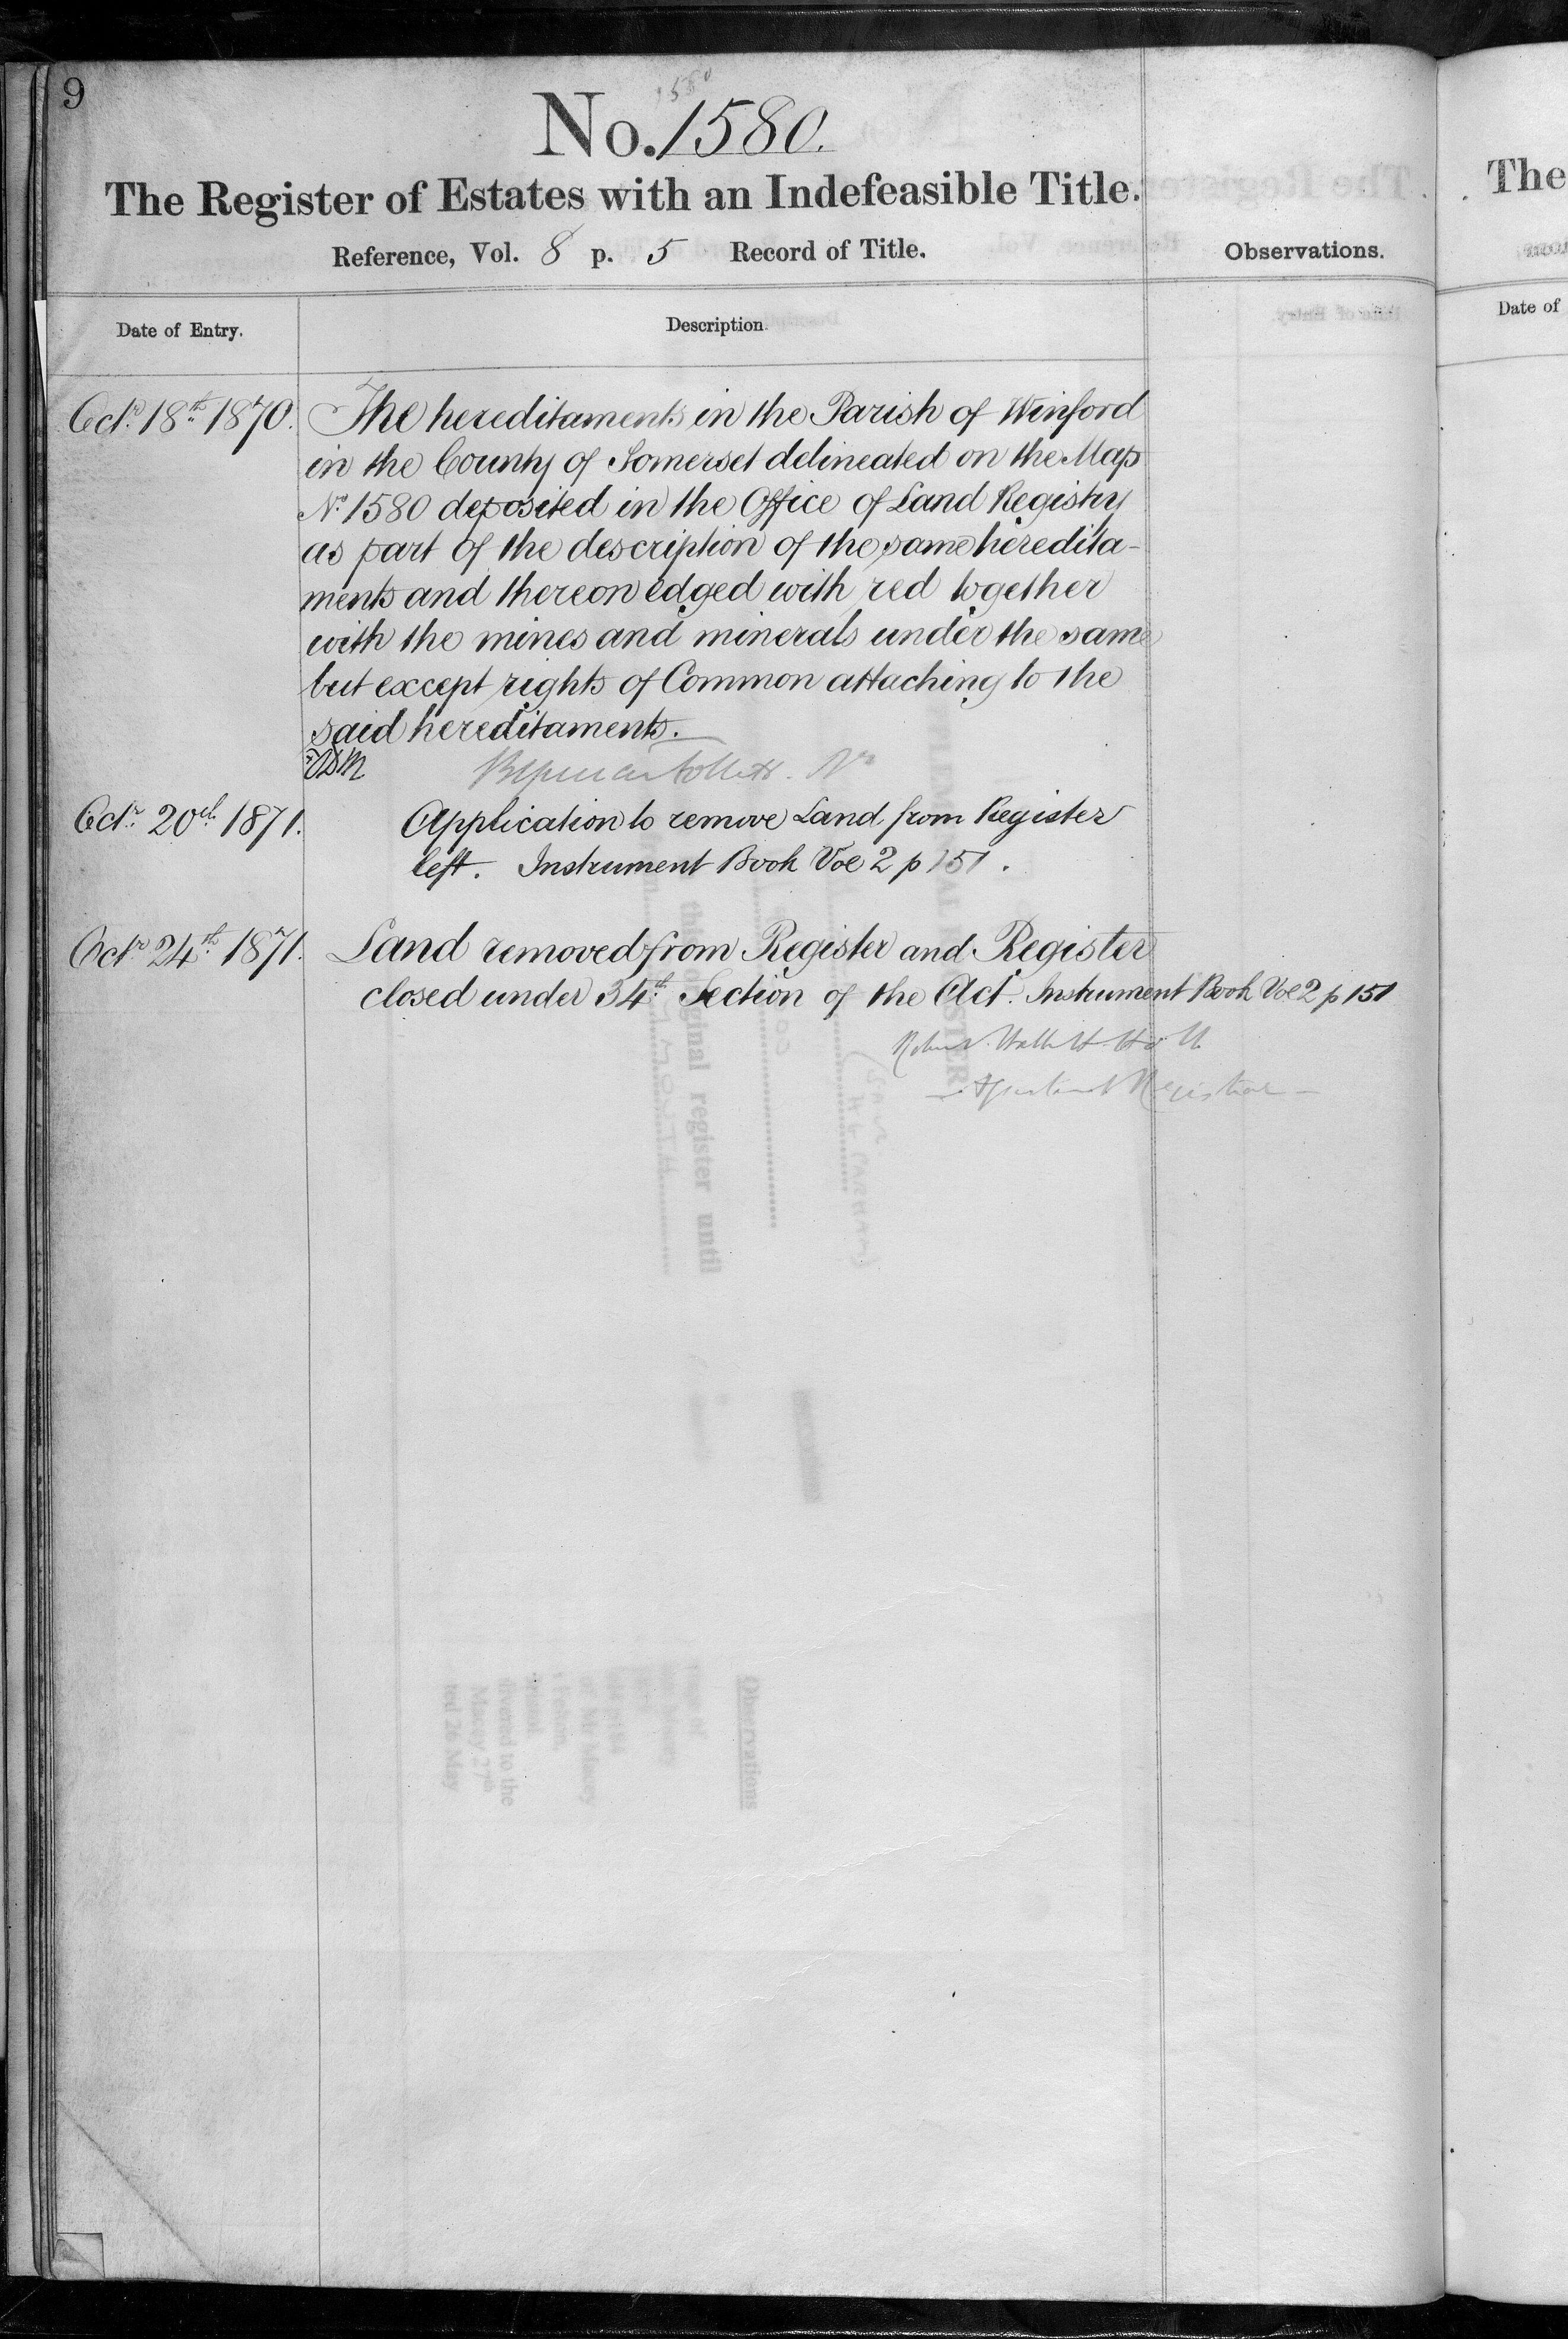 9
1580
No. 1580.
The Register of Estates with an Indefeasible Title.
Reference, Vol. 8 p. 5 Record of Title.
Observations.
Date of Entry.
Description.
Octr. 18th 1870.
The hereditaments in the Parish of Winford
in the County of Somerset delineated on the Map
No. 1580 deposited in the Office of Land Registry
as part of the description of the same heredita-
ments and thereon edged with red together
with the mines and minerals under the same
but except rights of Common attaching to the
said hereditaments.
Octr. 20th 1871.
Application to remove Land from Register
left. Instrument Book Vol 2 p 151.
Octr. 24th 1871.
Land removed from Register and Register
closed under 34th Section of the Act. Instrument Book Vol 2 p 151
Registrar
The
Date of